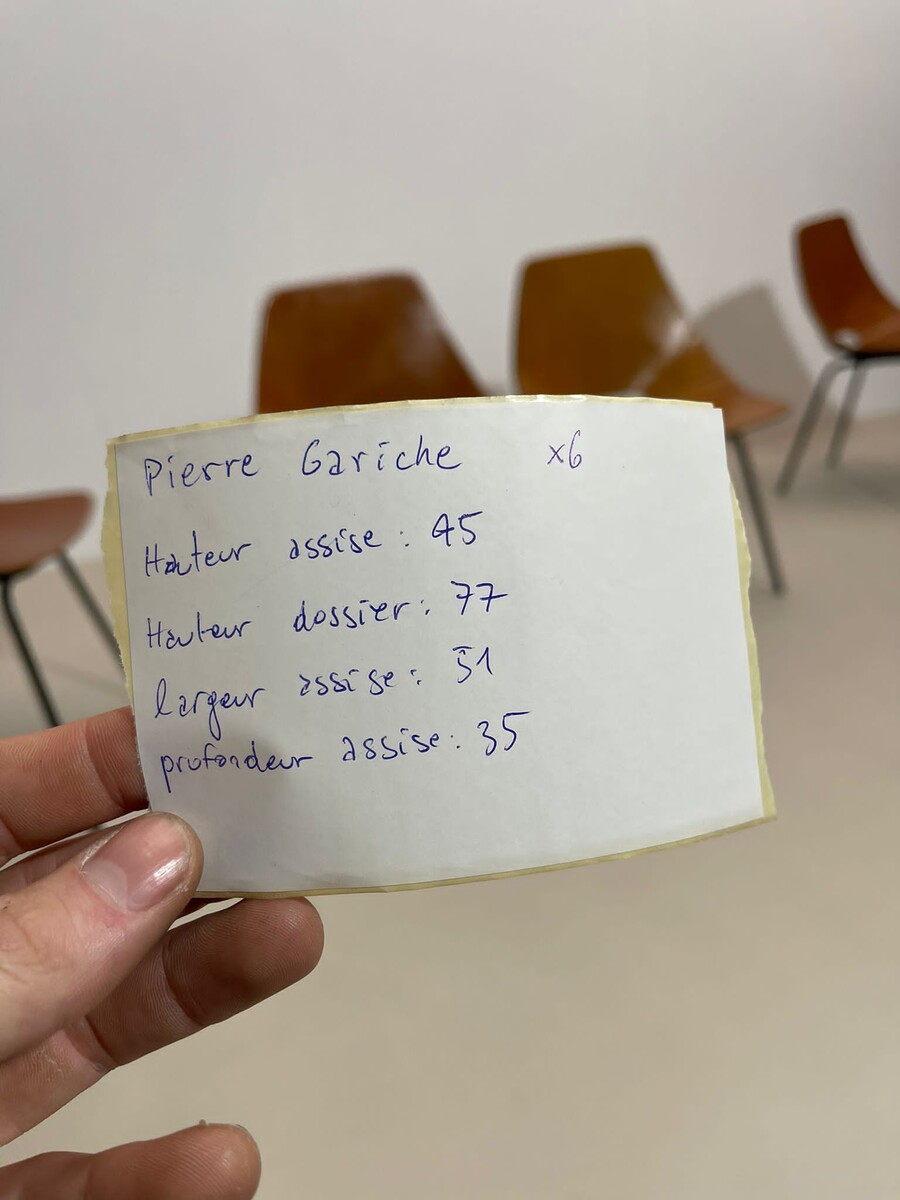 Pierre Gariche x6
Hauteur assise : 45
Hauteur dossier : 77
largeur assise : 51
profondeur assise : 35